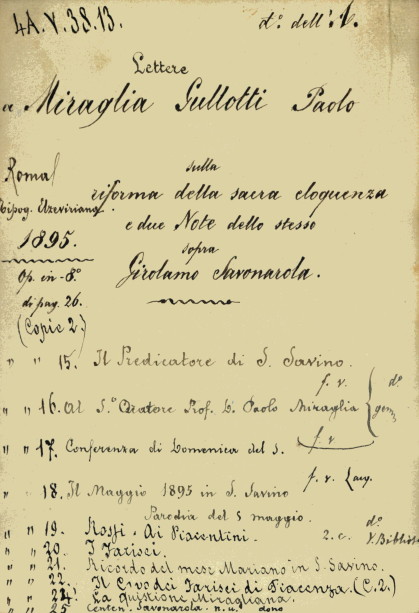 4A.V.38.13. d.º dell' A.
Lettere
a Miraglia Gullotti Paolo
sulla
riforma della sacra eloquenza
e due Note dello stesso
sopra
Girolamo Savonarola.
Roma
Tipog. Elzeviriana
1895.
Op. in-8º
di pag. 26.
(Copie 2.)
" " 15. Il Predicatore di S. Savino.
f. v.
" " 16. Al S.º Oratore Prof. D. Paolo Miraglia
" " 17. Conferenza di Domenica del 5. f. v.
f. v.
" " 18. Il Maggio 1895 in S. Savino
Parodia del 5 maggio.
" " 19. Rossi - Ai Piacentini. 2. c. d.º
" " 20. I Farisei.
" " 21. Ricordo del mese Mariano in S. Savino.
" " 22. Il Credo dei Farisei di Piacenza. (C. 2.)
" " 24. La quistione Miragliana.
" " 25. Centen. Savonarola - n. u. dono